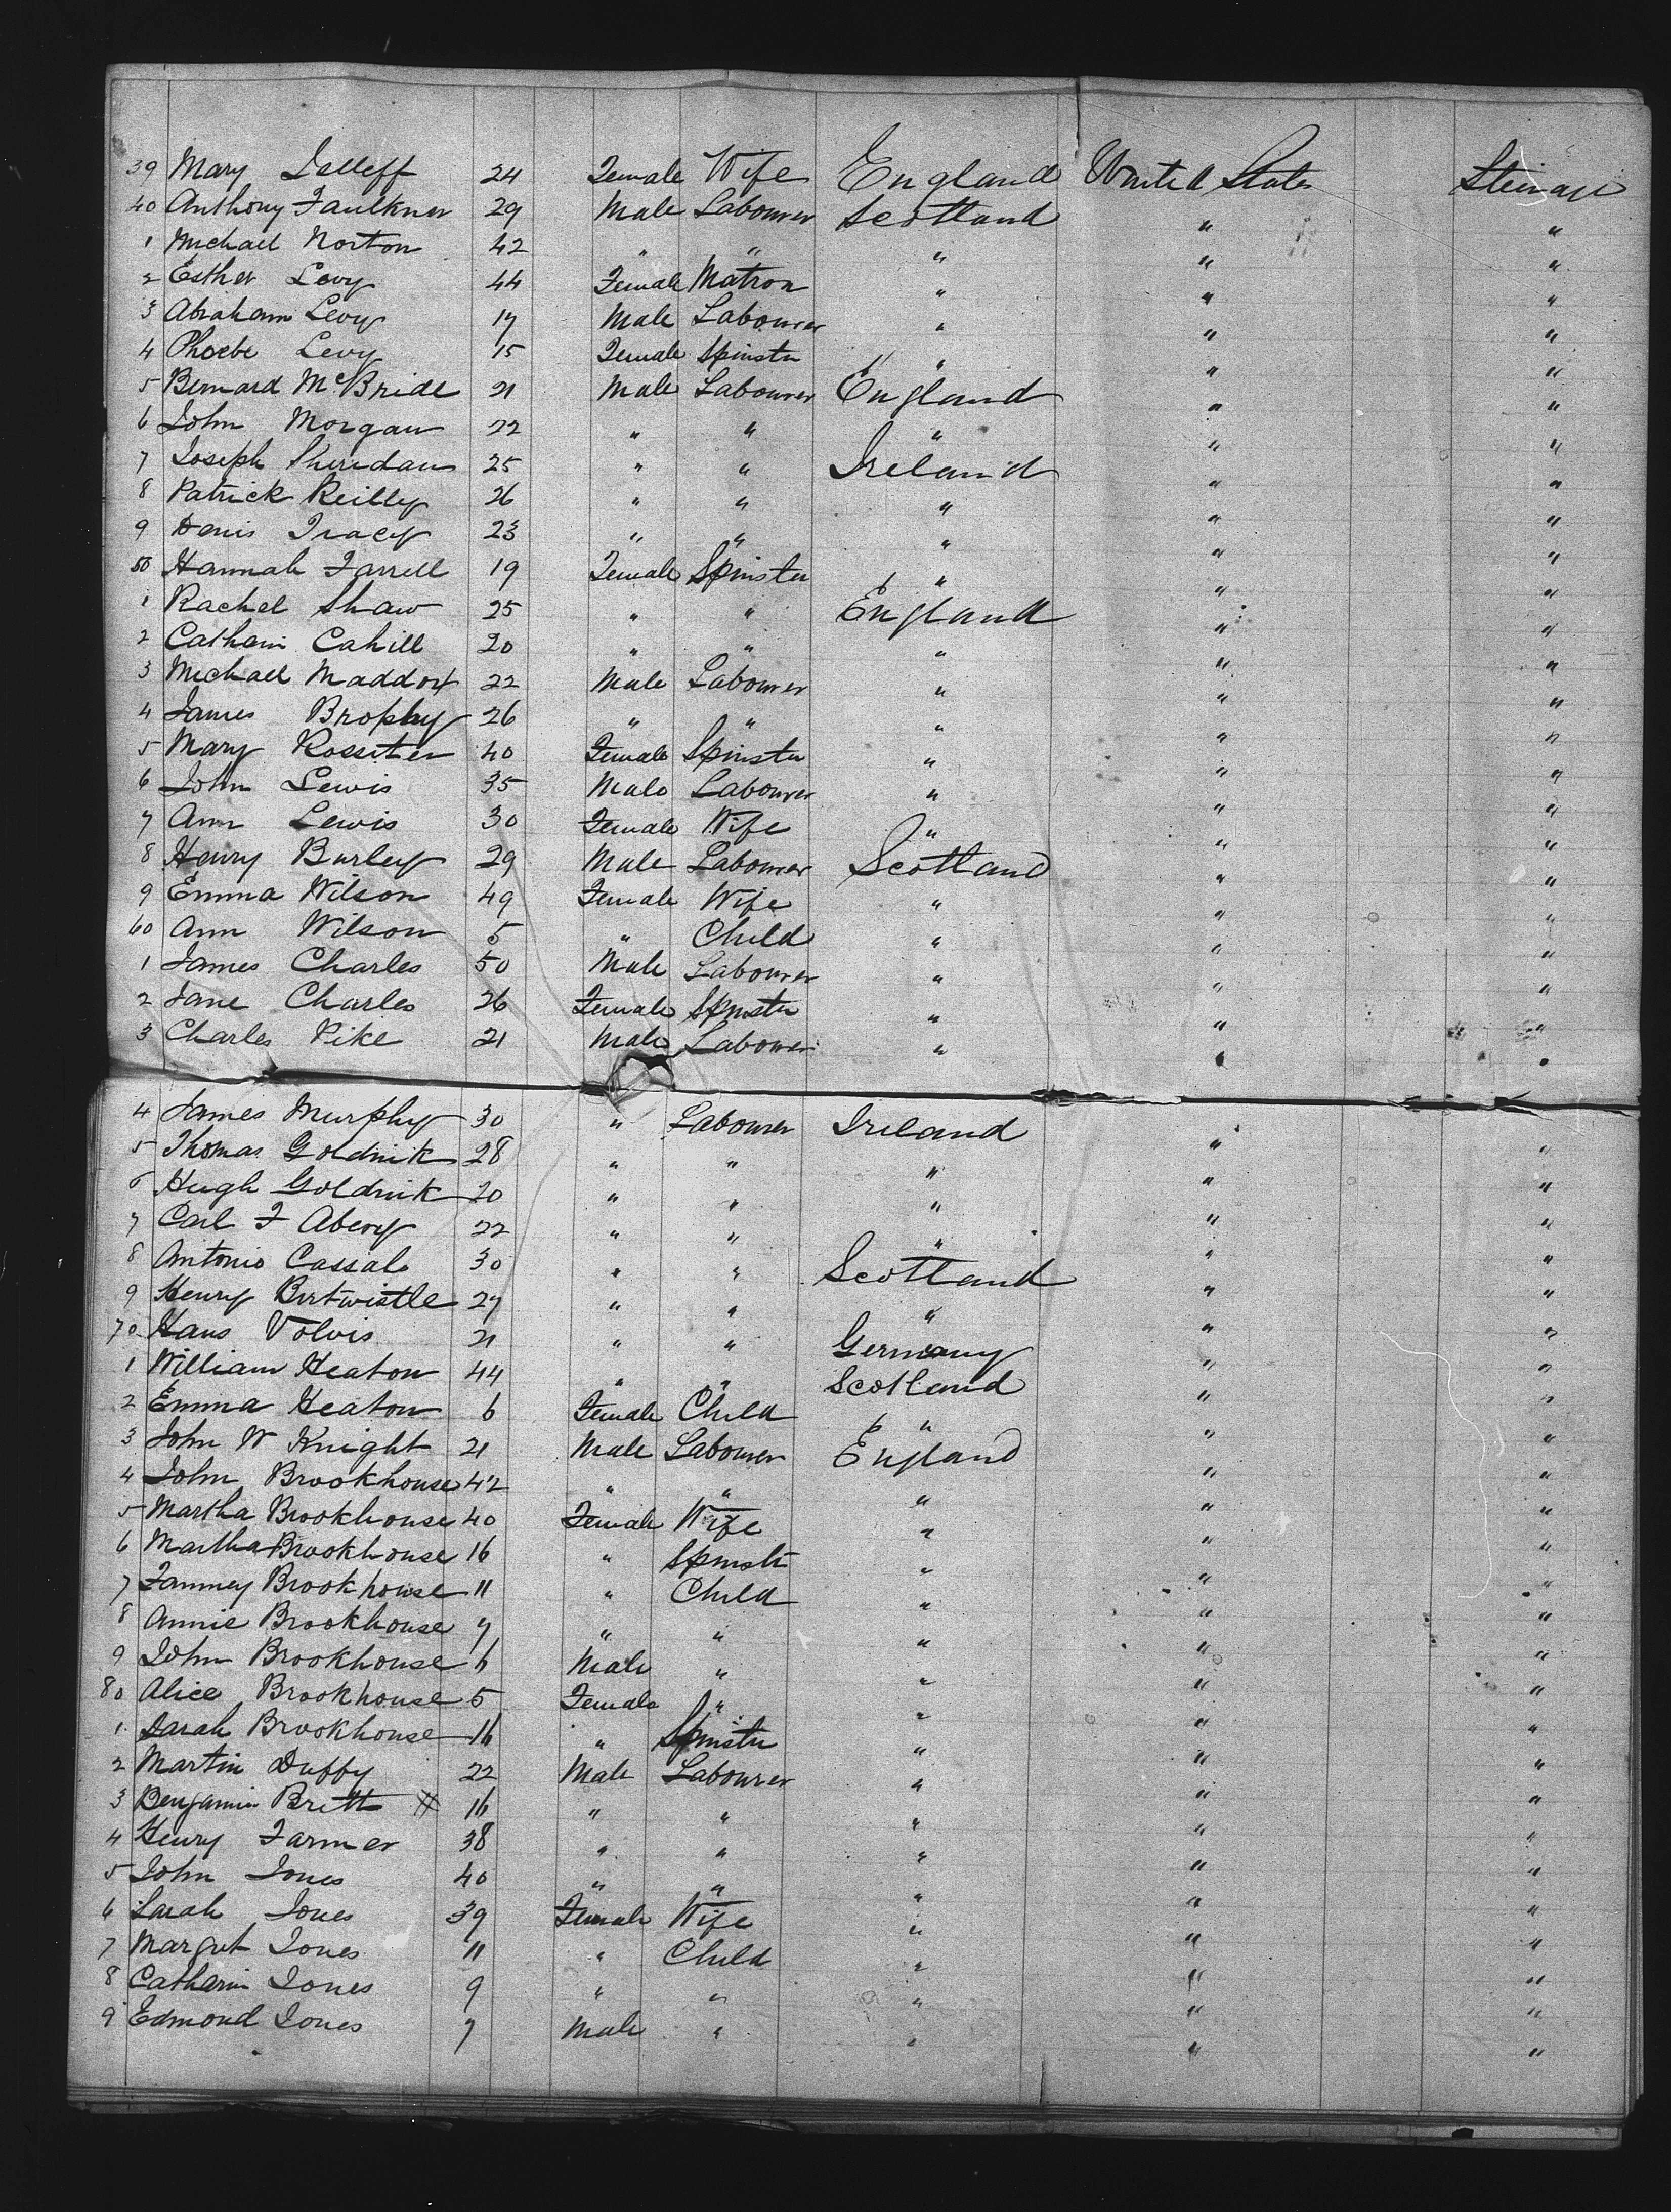 39 Mary Jelleff 24 Female Wife England United States Steirage
40 Anthony Faulkner 29 Male Labourer Scotland " "
1 Michael Norton 42 " " " " "
2 Esther Levy 44 Female Matron " " "
3 Abraham Levy 17 Male Labourer " " "
4 Phoebe Levy 15 Female Spinster " " "
5 Bernard McBride 21 Male Labourer England " "
6 John Morgan 22 " " " " "
7 Joseph Sheridan 25 " " Ireland " "
8 Patrick Reilly 26 " " " " "
9 Denis Tracey 23 " " " " "
50 Hannah Farrell 19 Female Spinster " " "
1 Rachel Shaw 25 " " England " "
2 Catharin Cahill 20 " " " " "
3 Michael Maddox 22 Male Labourer " " "
4 James Brophy 26 " " " " "
5 Mary Rossiter 40 Female Spinster " " "
6 John Lewis 35 Male Labourer " " "
7 Ann Lewis 30 Female Wife " " "
8 Henry Burley 29 Male Labourer Scotland " "
9 Emma Wilson 49 Female Wife " " "
60 Ann Wilson 5 " Child " " "
1 James Charles 50 Male Labourer " " "
2 Jane Charles 26 Female Spinster " " "
3 Charles Pike 21 Male Labourer " " "
4 James Murphy 30 " Labourer Ireland " "
5 Thomas Goldnik 28 " " " " "
6 Hugh Goldnik 20 " " " " "
7 Carl F Abery 22 " " " " "
8 Antonio Cassalo 30 " " Scotland " "
9 Henry Birtwistle 27 " " " " "
70 Hans Volvis 21 " " Germany " "
1 William Heaton 44 " " Scotland " "
2 Emma Heaton 6 Female Child " " "
3 John W Knight 21 Male Labourer England " "
4 John Brookhouse 42 " " " " "
5 Martha Brookhouse 40 Female Wife " " "
6 Martha Brookhouse 16 " Spinster " " "
7 Fanney Brookhouse 11 " Child " " "
8 Annie Brookhouse 7 " " " " "
9 John Brookhouse 6 Male " " " "
80 Alice Brookhouse 5 Female " " " "
1 Sarah Brookhouse 16 " Spinster " " "
2 Martin Duffy 22 Male Labourer " " "
3 Benjamin Britt 16 " " " " "
4 Henry Farmer 38 " " " " "
5 John Jones 40 " " " " "
6 Sarah Jones 39 Female Wife " " "
7 Margrit Jones 11 " Child " " "
8 Catharin Jones 9 " " " " "
9 Edmond Jones 7 Male " " " "